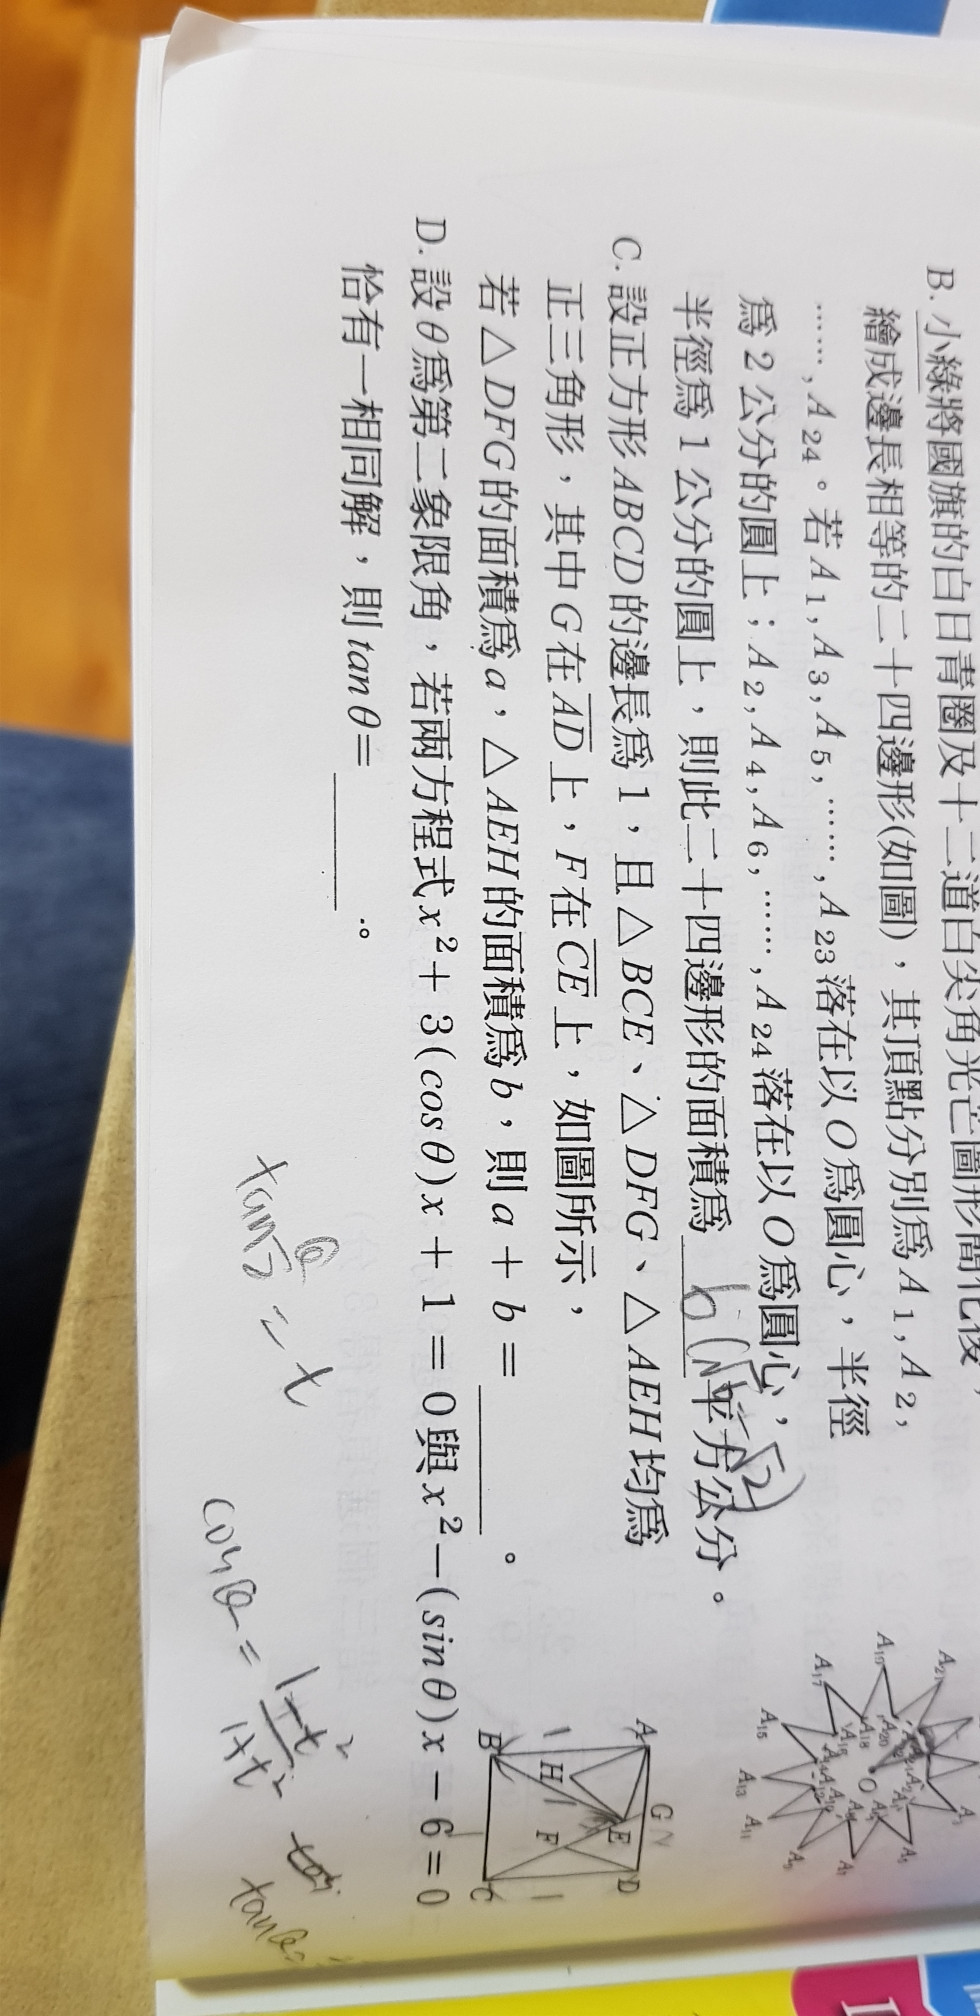 B. 小綠將國旗的白日青圈及十二道白尖角光芒圖形簡化後，
繪成邊長相等的二十四邊形(如圖)，其頂點分別為A1, A2,
……, A24。若A1, A3, A5, ……, A23落在以O為圓心，半徑
為2公分的圓上；A2, A4, A6, ……, A24落在以O為圓心，
半徑為1公分的圓上，則此二十四邊形的面積為 平方公分。
6(√6-√2)
C. 設正方形ABCD的邊長為1，且△BCE、△DFG、△AEH均為
正三角形，其中G在AD上，F在CE上，如圖所示，
若△DFG的面積為a，△AEH的面積為b，則a+b= 。
D. 設θ為第二象限角，若兩方程式x²+3(cosθ)x+1=0與x²-(sinθ)x-6=0
恰有一相同解，則tanθ= 。
tan θ/2 = t
cosθ = 1-t²/1+t²
tanθ=
A21
A19
A17
A15
A13
A11
A20
A18
O
A
G
D
E
H
F
1
1
B
C